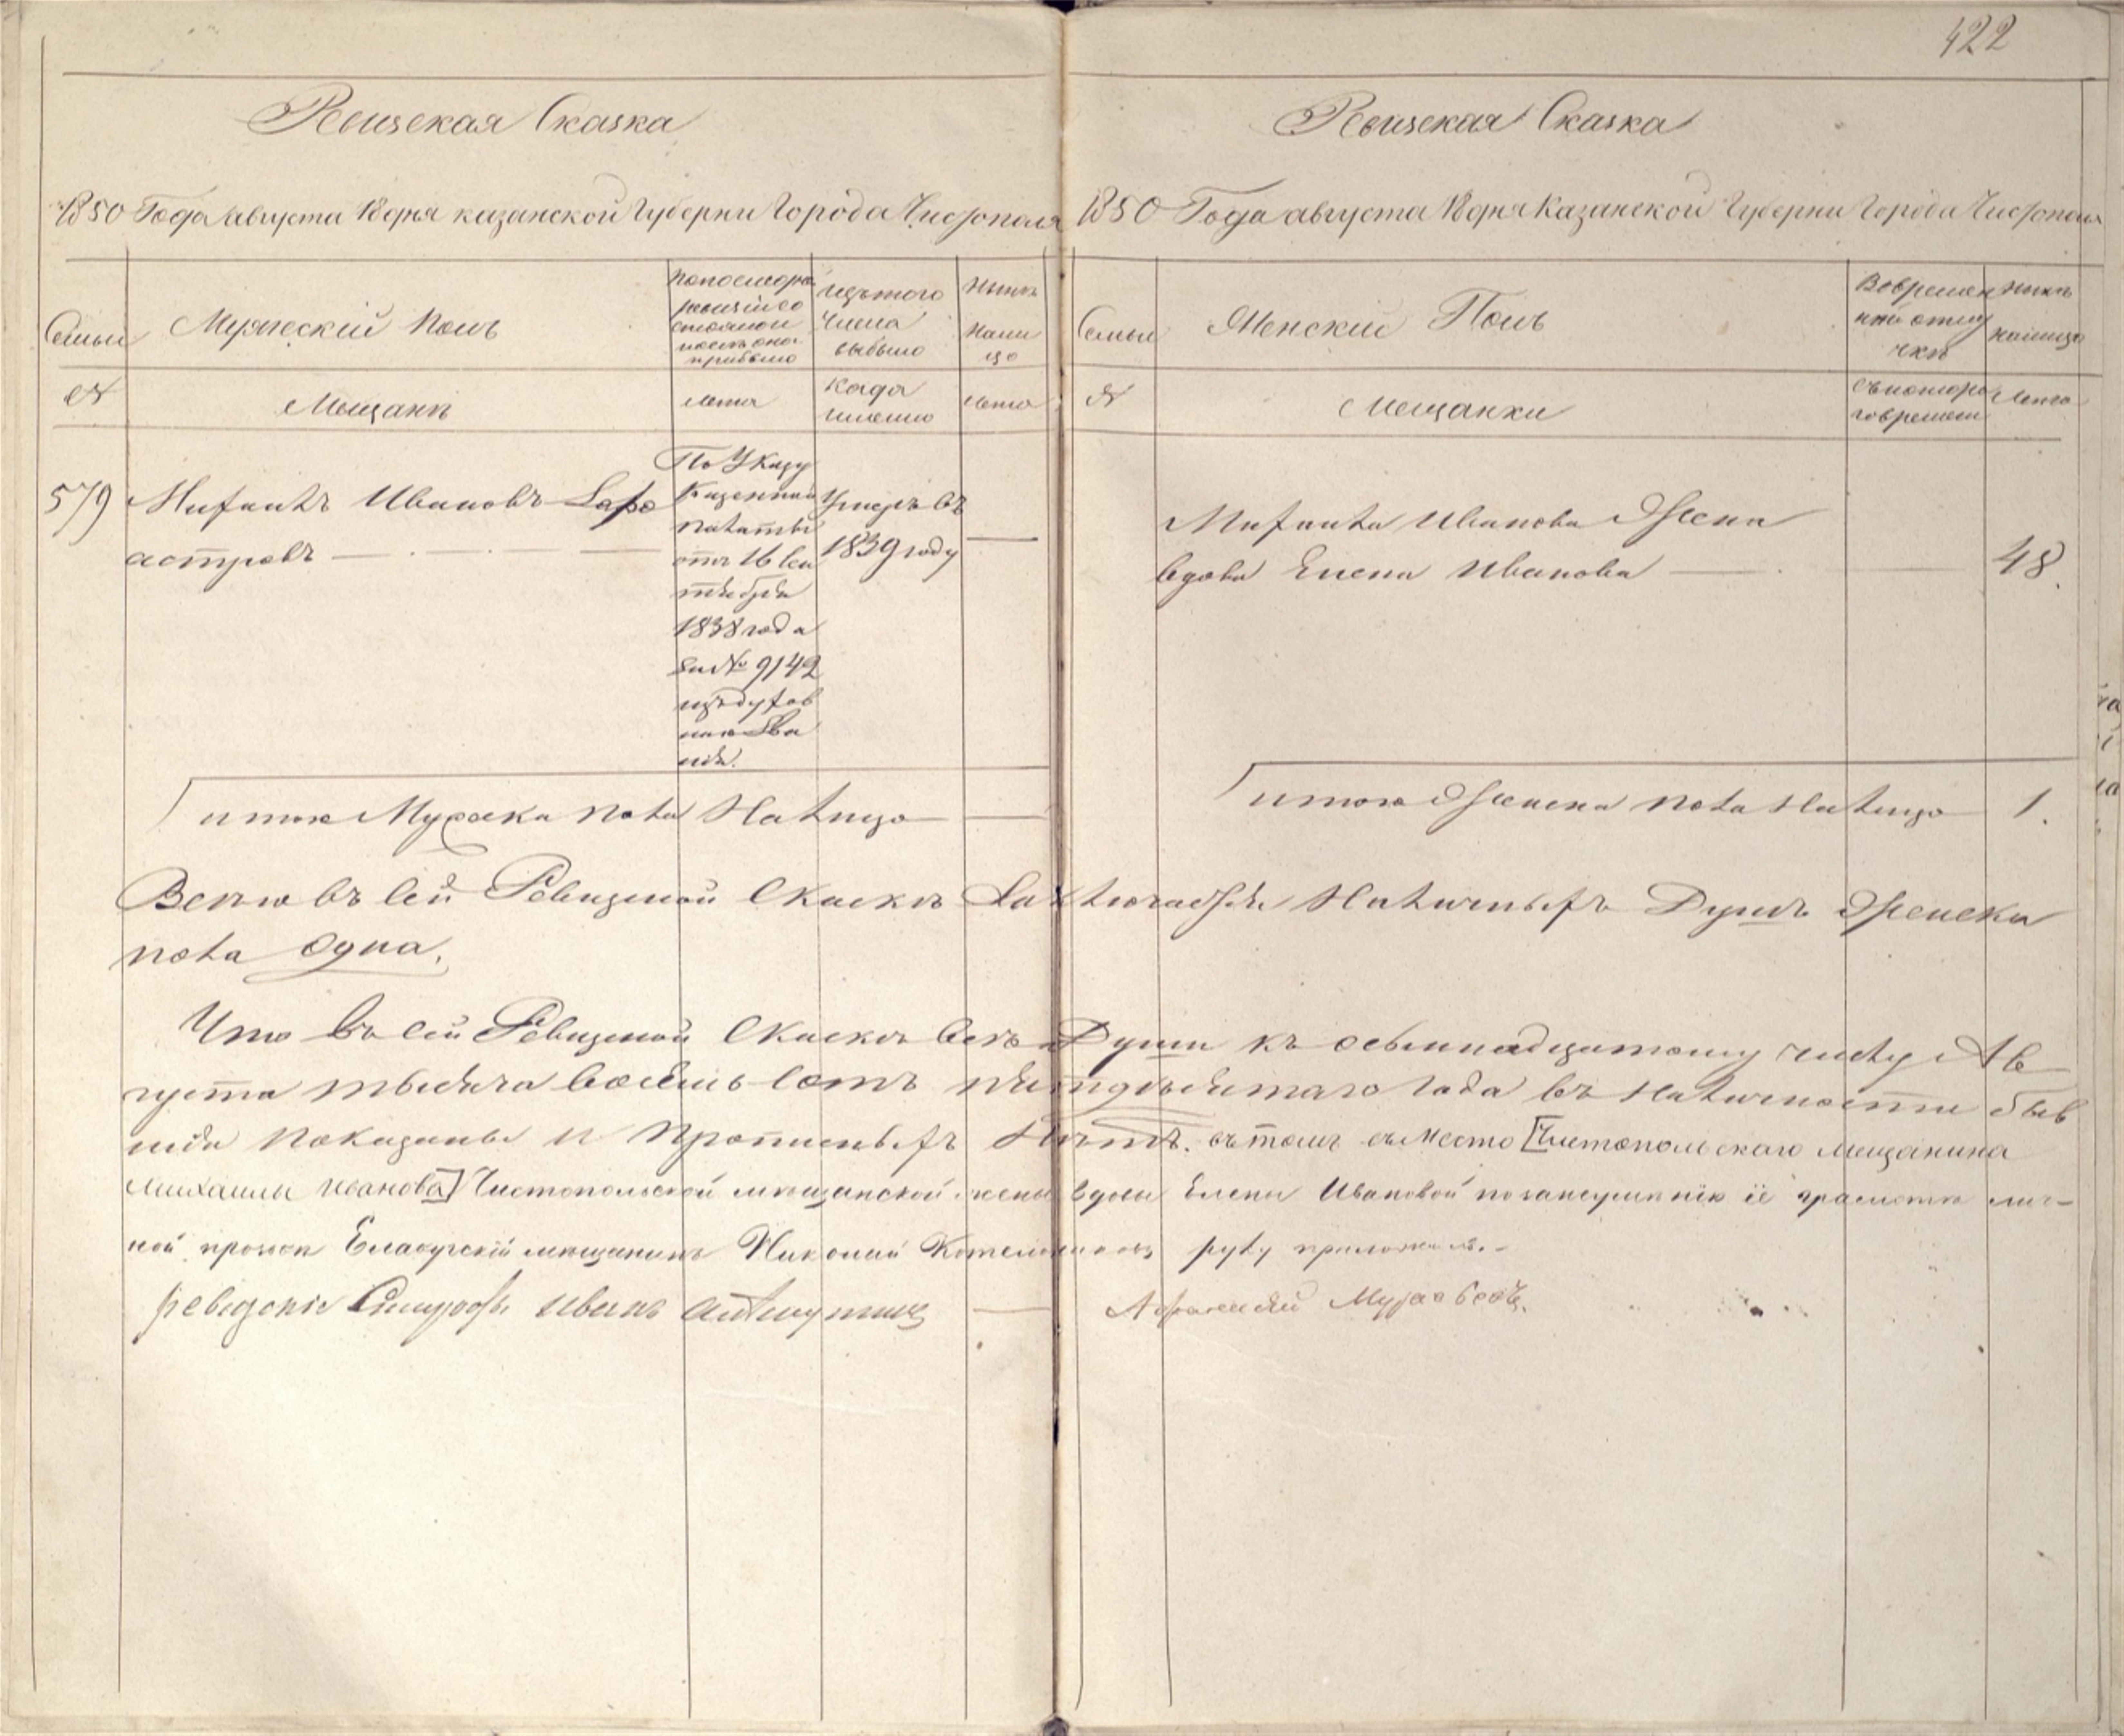 422
Ревизская Сказка
1850 Года августа 18 дня казанской Губерни Города Чистополя
Семьи
Мужеский Полъ
По последней ревизіи состояло и после оной прибыло
Изъ того Числа выбыло
Ныне на лицо
№
Мещане
лета
Когда именно
лета
579
Михаилъ Ивановъ Захо
астровъ
По Указу
Казенной
палаты
отъ 16 Сен
тября
1838 года
за № 9142
изъ духов
наго Зва
нія.
Умеръ въ
1839 году
итого Мужеска пола На лицо
Ревизская Сказка
1850 Года августа 18 дня Казанской Губерни Города Чистополя
Семьи
Женский Полъ
Во временной отлучке
Ныне на лицо
№
Мещанки
съ котораго времени
Лета
Михаила Иванова Жена
вдова Елена Иванова
48.
итого Женска пола На лицо 1.
Всего въ сей Ревизской Сказке Заключается Наличныхъ Душъ Женска
пола Одна.
Что въ сей Ревизской Сказке все Души къ осьмнадцатому числу Ав
густа тысяча восемь сотъ пятидесятаго Года въ Наличности быв
шія показаны и прописныхъ Нетъ. въ томъ вместо [Чистопольскаго мещанина
Михаилы Иванова] Чистопольской мещанской жены вдовы Елены Ивановой по неуменію её грамоте лич-
ной прозбе Елабугскій мещанинъ Николай Котельниковъ руку приложилъ.-
Иванъ
Муравьевъ.